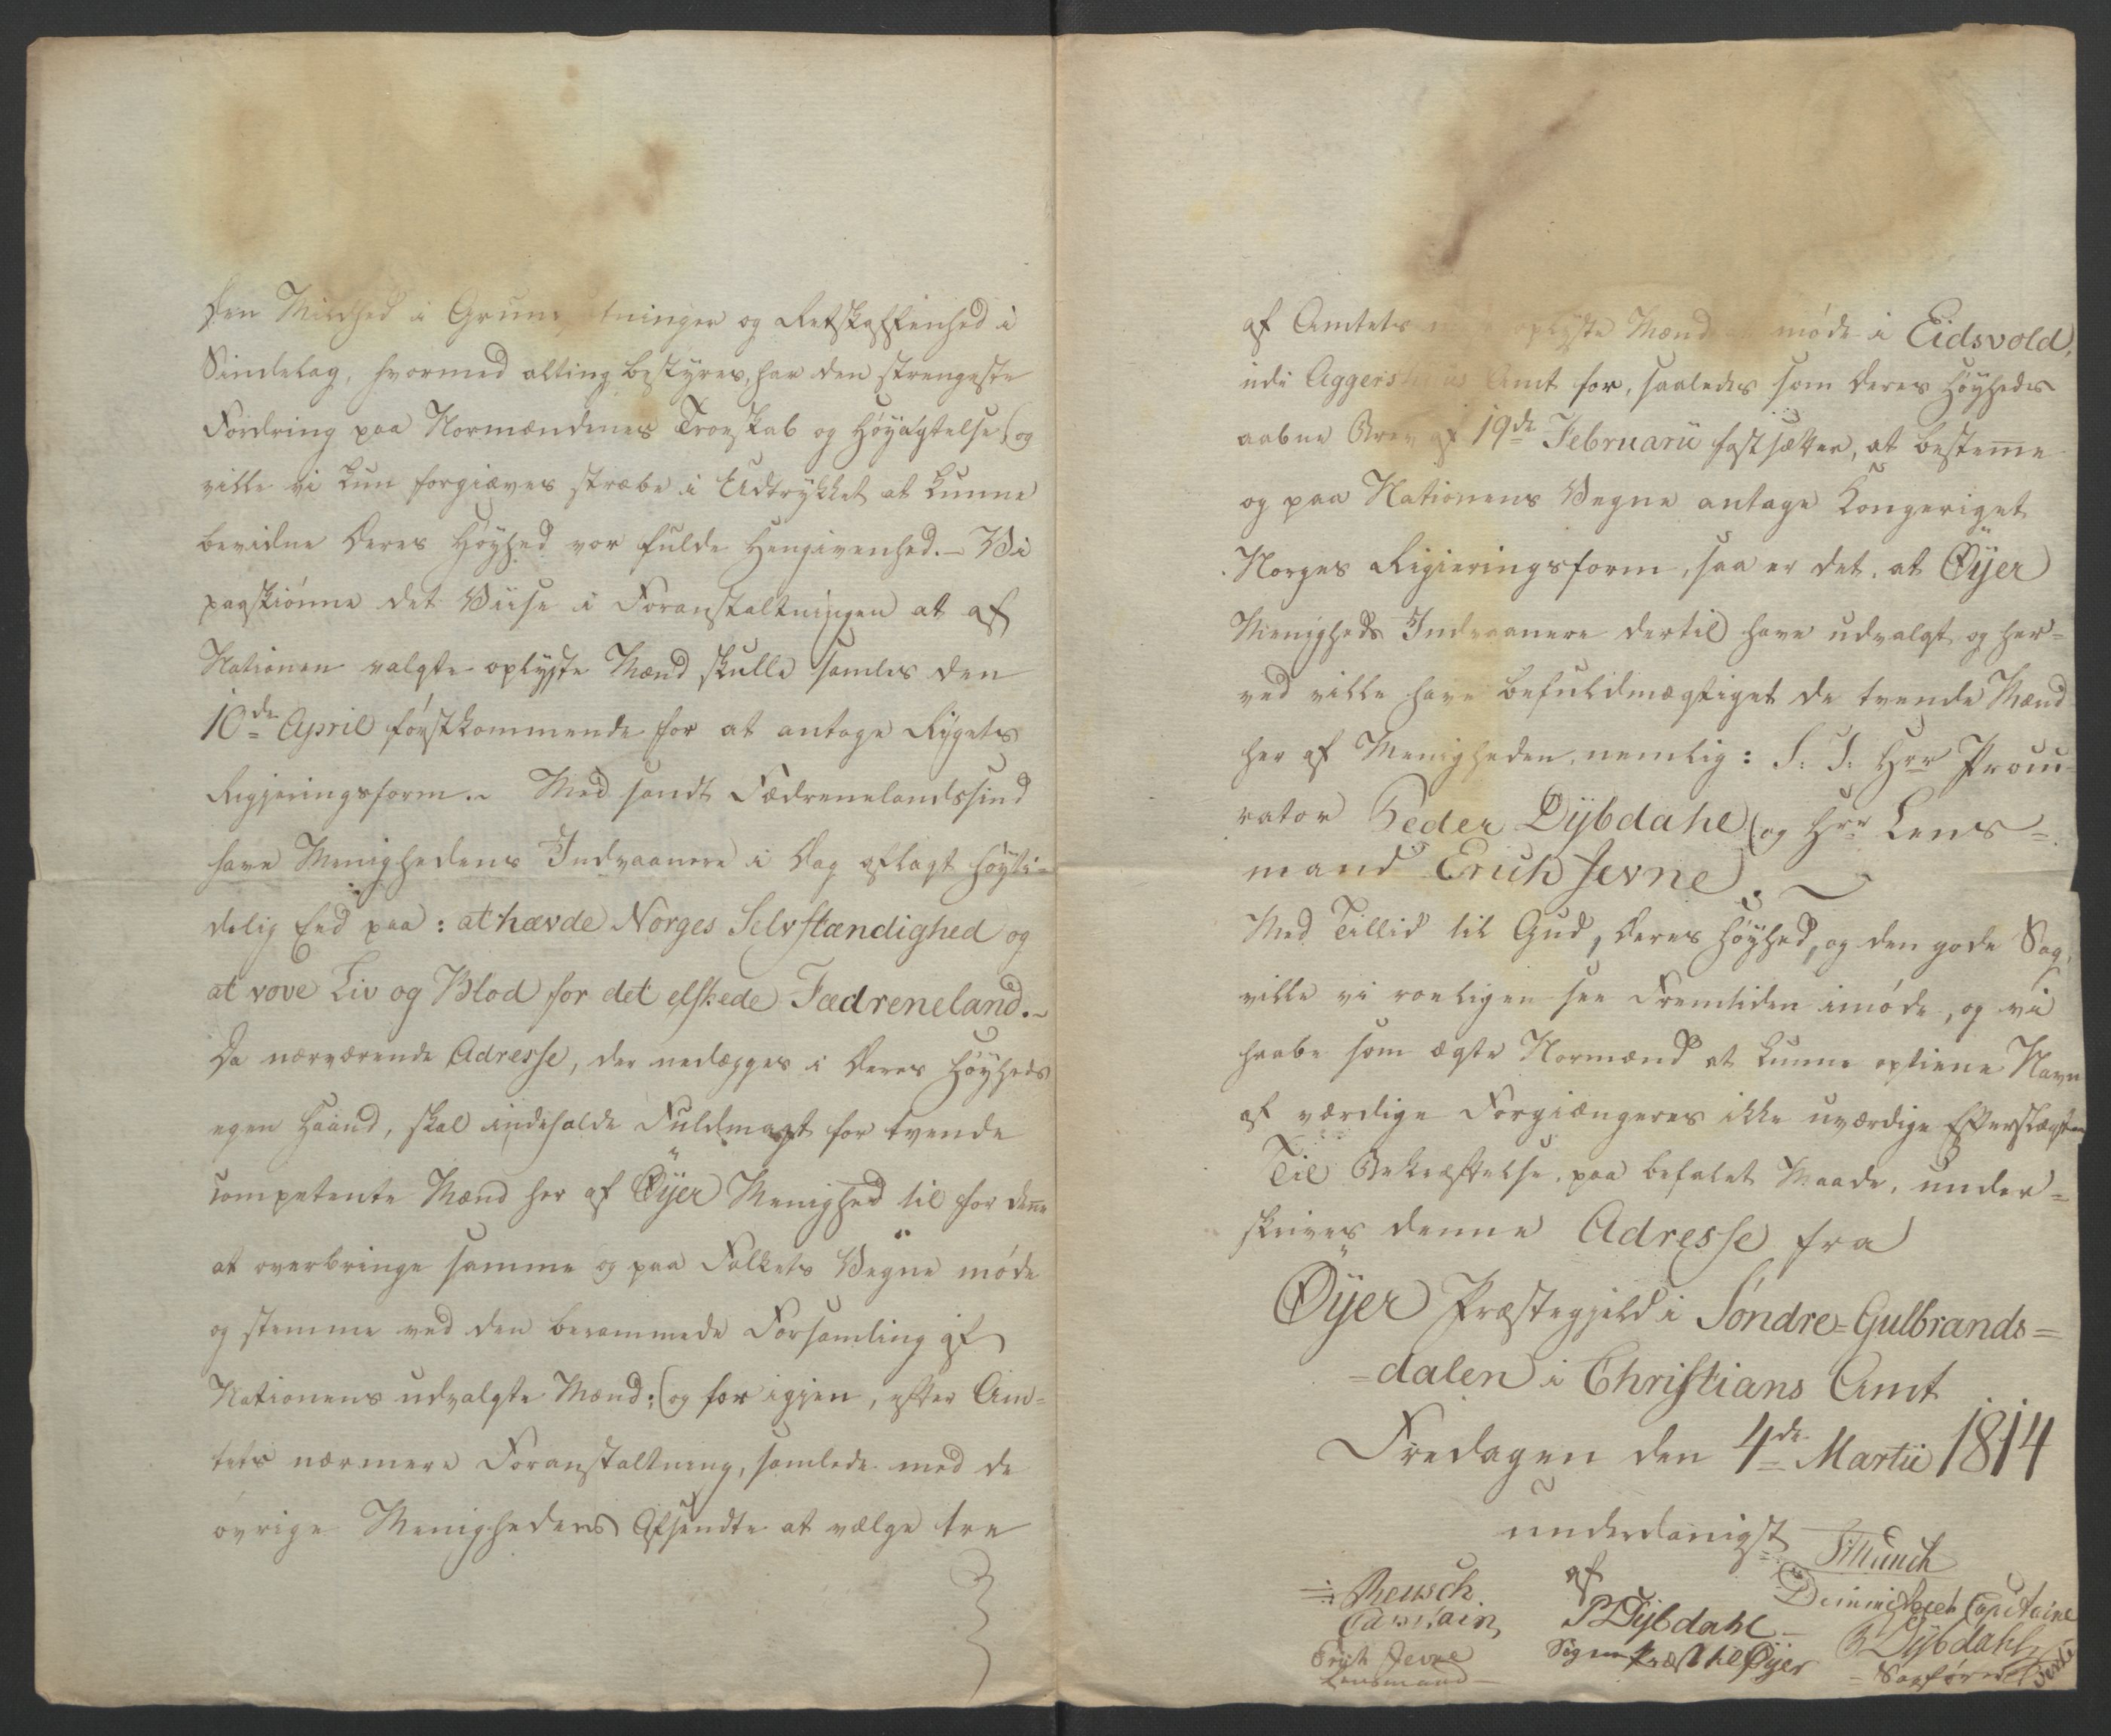 Den Mildhed i Grundsætninger og Retskaffenhed i
Sindelag, hvormed alting bestyres, har den strengeste
Fordring paa Normændenes Troeskab og Høyagtelse, og
ville vi kun forgiæves stræbe i Udtrykket at kunne
bevidne Deres Høyhed vor fulde Hengivenhed. – Vi
paaskiønne det Viise i Foranstaltningen at af
Nationen valgte oplyste Mænd skulle samles den
10de April førstkommende for at antage Rigets
Regjeringsform. – Med sandt Fædrenelandssind
have Menighedens Indvaanere i Dag aflagt høyti=
delig Eed paa: at hævde Norges Selvstændighed og
at vove Liv og Blod for det elskede Fædreneland. –
Da nærværende Adresse, der nedlægges i Deres Høyheds
egen Haand, skal indeholde Fuldmagt for tvende
competente Mænd her af Øÿer Menighed til for denne
at overbringe samme og paa Folkets Vegne møde
og stemme ved den berammede Forsamling af
Nationens udvalgte Mænd; og for igjen, efter Am=
tets nærmere Foranstaltning, samlede med de
øvrige Menigheders Afsendte at vælge tre
af Amtets oplyste Mænd møde i Eidsvold,
udi Aggershuus Amt for, saaledes som Deres Høyheds
aabne Brev af 19de Februarii fastsætter, at bestemme
og paa Nationens Vegne antage Kongeriget
Norges Regieringsform, saa er det, at Øÿer
Menigheds Indvaanere dertil have udvalgt og her=
ved ville have befuldmægtiget de tvende Mænd
her af Menigheden, nemlig: S. T. Hrr Procu=
rator Peder Dÿbdahl og Hrr Lens=
mand Erich Jevne. –
Med Tillid til Gud, Deres Høyhed, og den gode Sag,
ville vi roeligen see Fremtiden imøde, og vi
haabe som ægte Normænd at kunne optiene Navn
af værdige Forgiængeres ikke uværdige Efterslægter
Til Bekræftelse, paa befalet Maade, under=
skrives denne Adresse fra
Øÿer Præstegjeld i Søndre=Gulbrands=
=dalen i Christians Amt
Fredagen den 4de Martii 1814
underdanigst
af
Munch
Reusch
Capitain
Capitaine
P Dÿbdahl
Sogne Præst til Øÿer
P Dÿbdahl
Sagfører
Erich Jevne
Lensmand